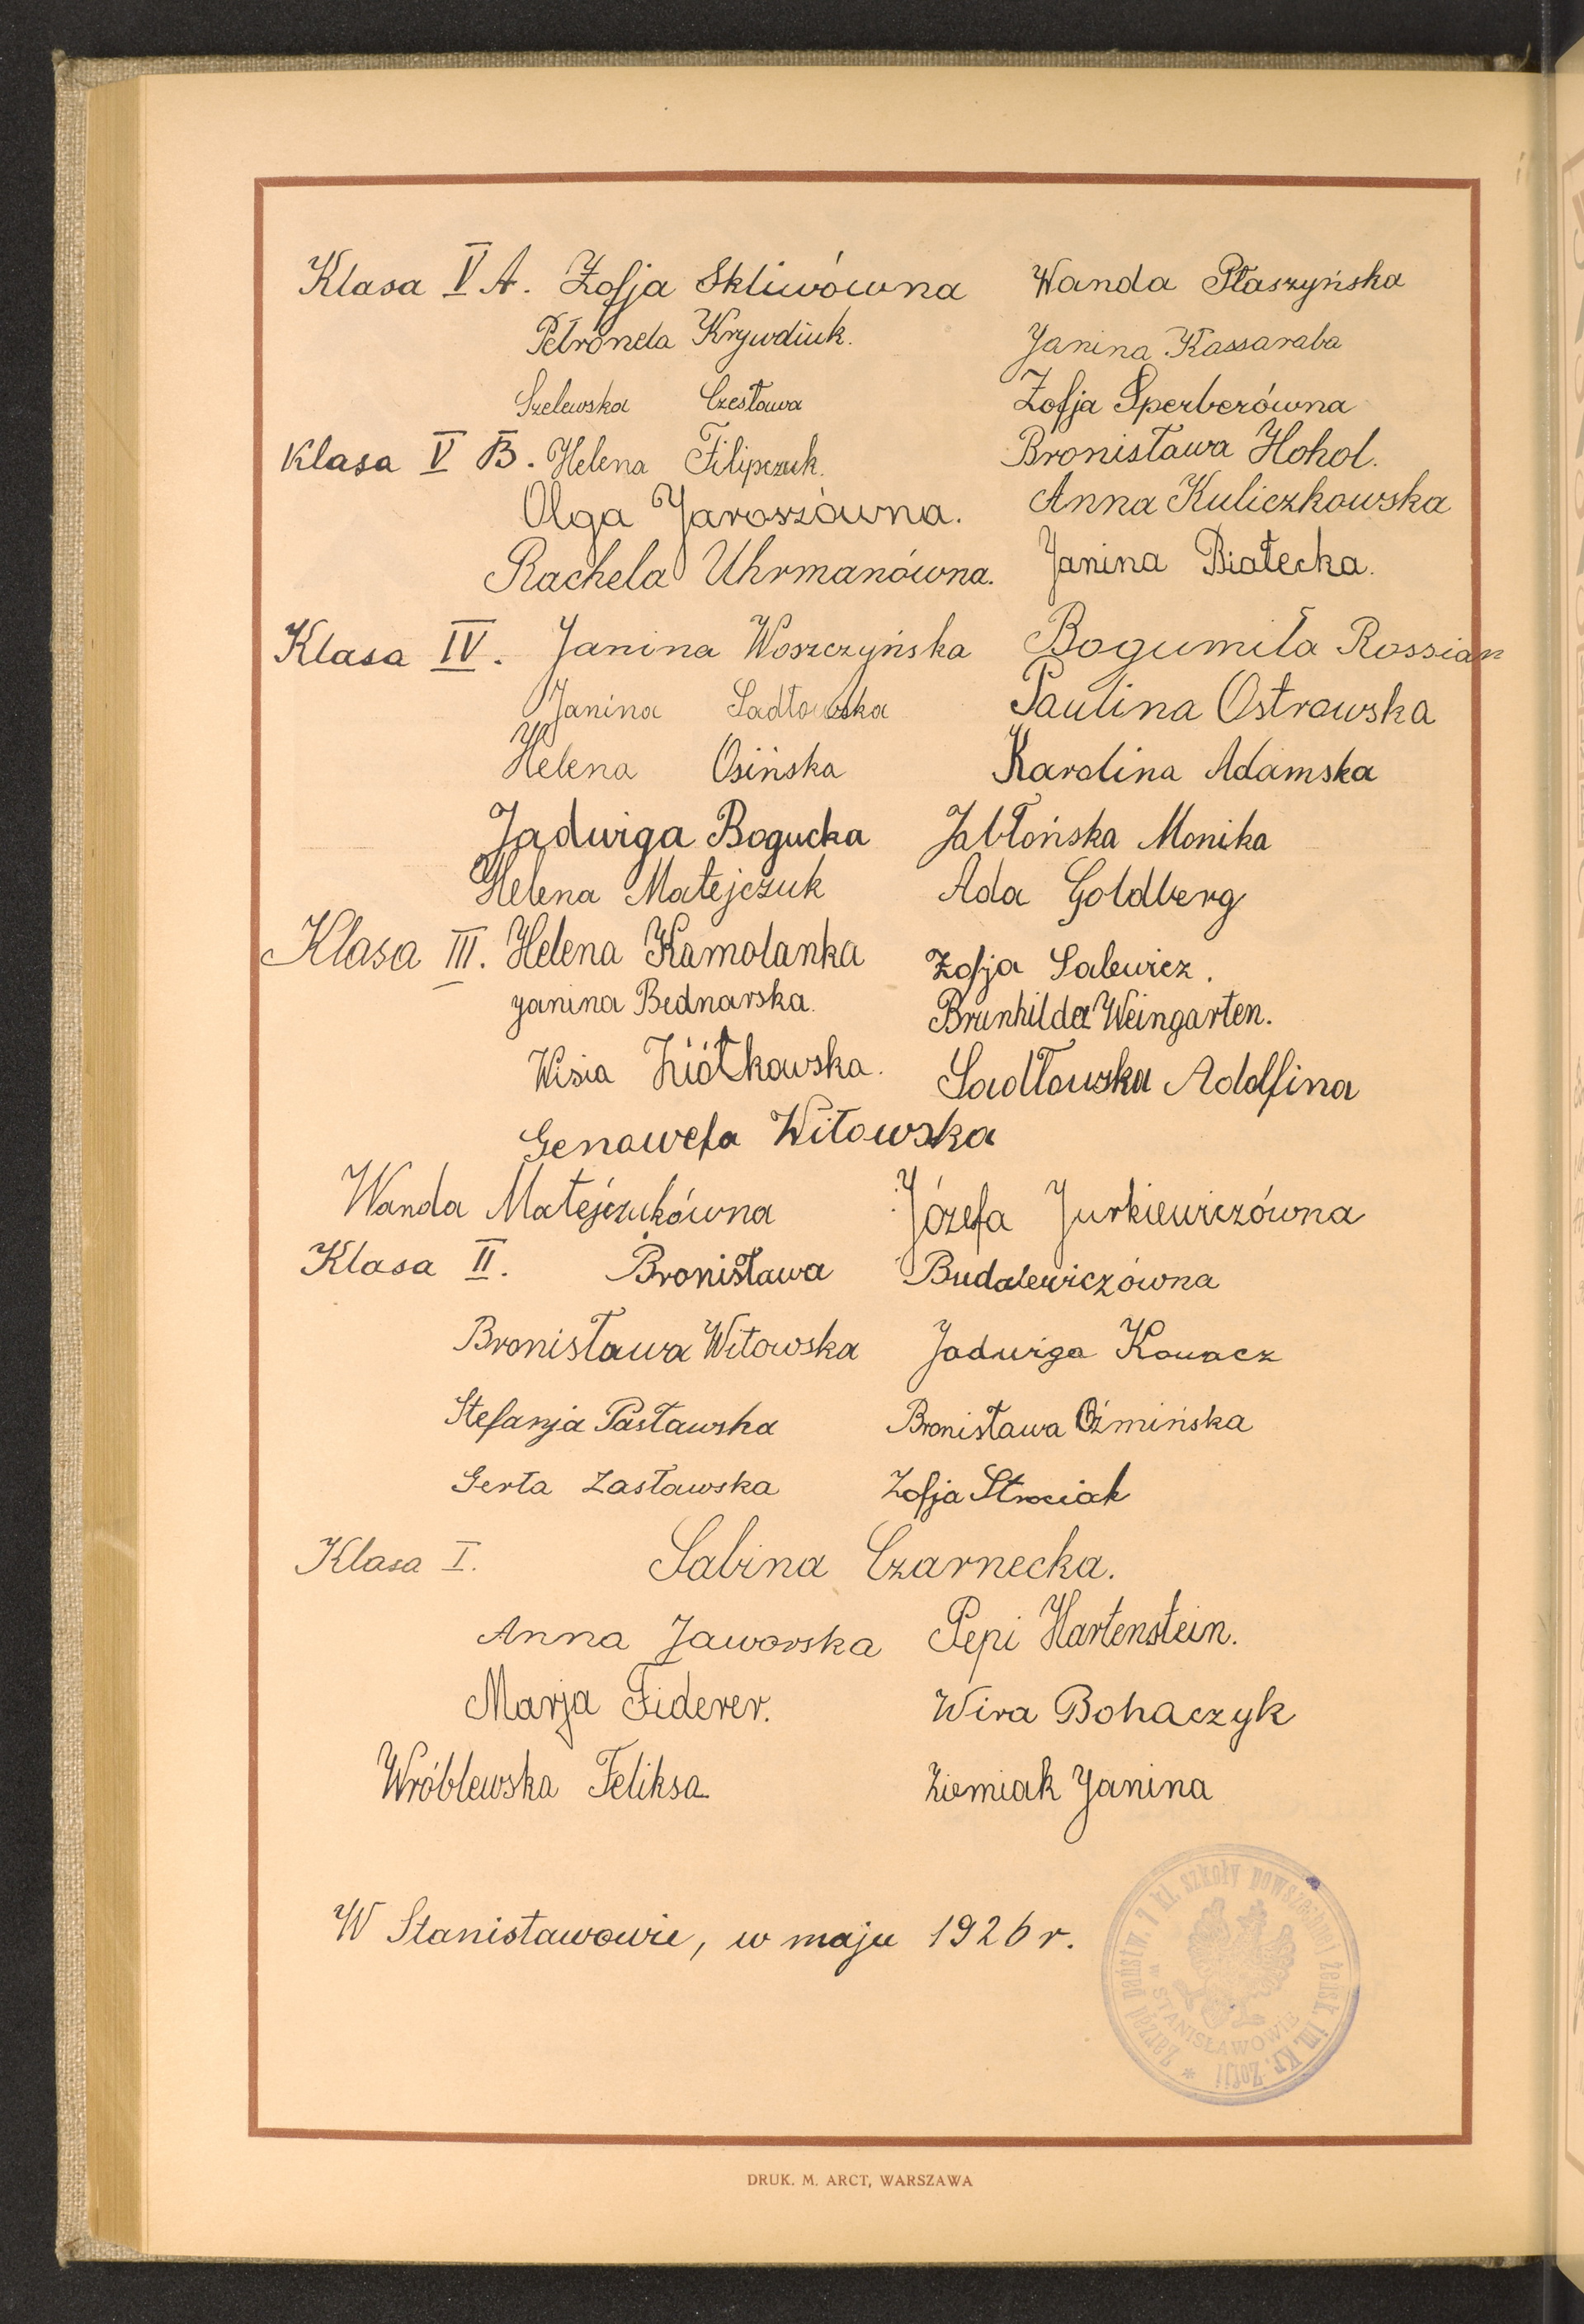 Klasa V A. Zofja Skliwówna Wanda Płaszyńska
Petronela Krywdiuk. Janina Kassaraba
Szelewska Czesława Zofja Sperberówna
Klasa V B. Helena Filipczuk. Bronisława Hohol.
Olga Jaroszówna. Anna Kuliczkowska
Rachela Uhrmanówna. Janina Białecka.
Klasa IV. Janina Woszczyńska Bogumiła Rossian
Janina Sadłowska Paulina Ostrowska
Helena Osińska Karolina Adamska
Jadwiga Bogucka Jabłońska Monika
Helena Matejczuk Ada Goldberg
Klasa III. Helena Kamolanka Zofja Salewicz.
Janina Bednarska. Brunhilda Weingarten.
Wisia Ziółkowska. Sadłowska Adolfina
Genowefa Witowska
Wanda Matejczukówna Józefa Jurkiewiczówna
Klasa II. Bronisława Budalewiczówna
Bronisława Witowska Jadwiga Kowacz
Stefanja Pasławska Bronisława Oźmińska
Gerta Zasławska Zofja Strociak
Klasa I. Sabina Czarnecka.
Anna Jaworska Pepi Hartenstein.
Marja Fiderer. Wira Bohaczyk
Wróblewska Feliksa Ziemiak Janina
W Stanisławowie, w maju 1926 r.
Zarząd państw. 7 kl. szkoły powszechnej żeńsk. im. Kr. Zofji *
w STANISŁAWOWIE
DRUK. M. ARCT, WARSZAWA